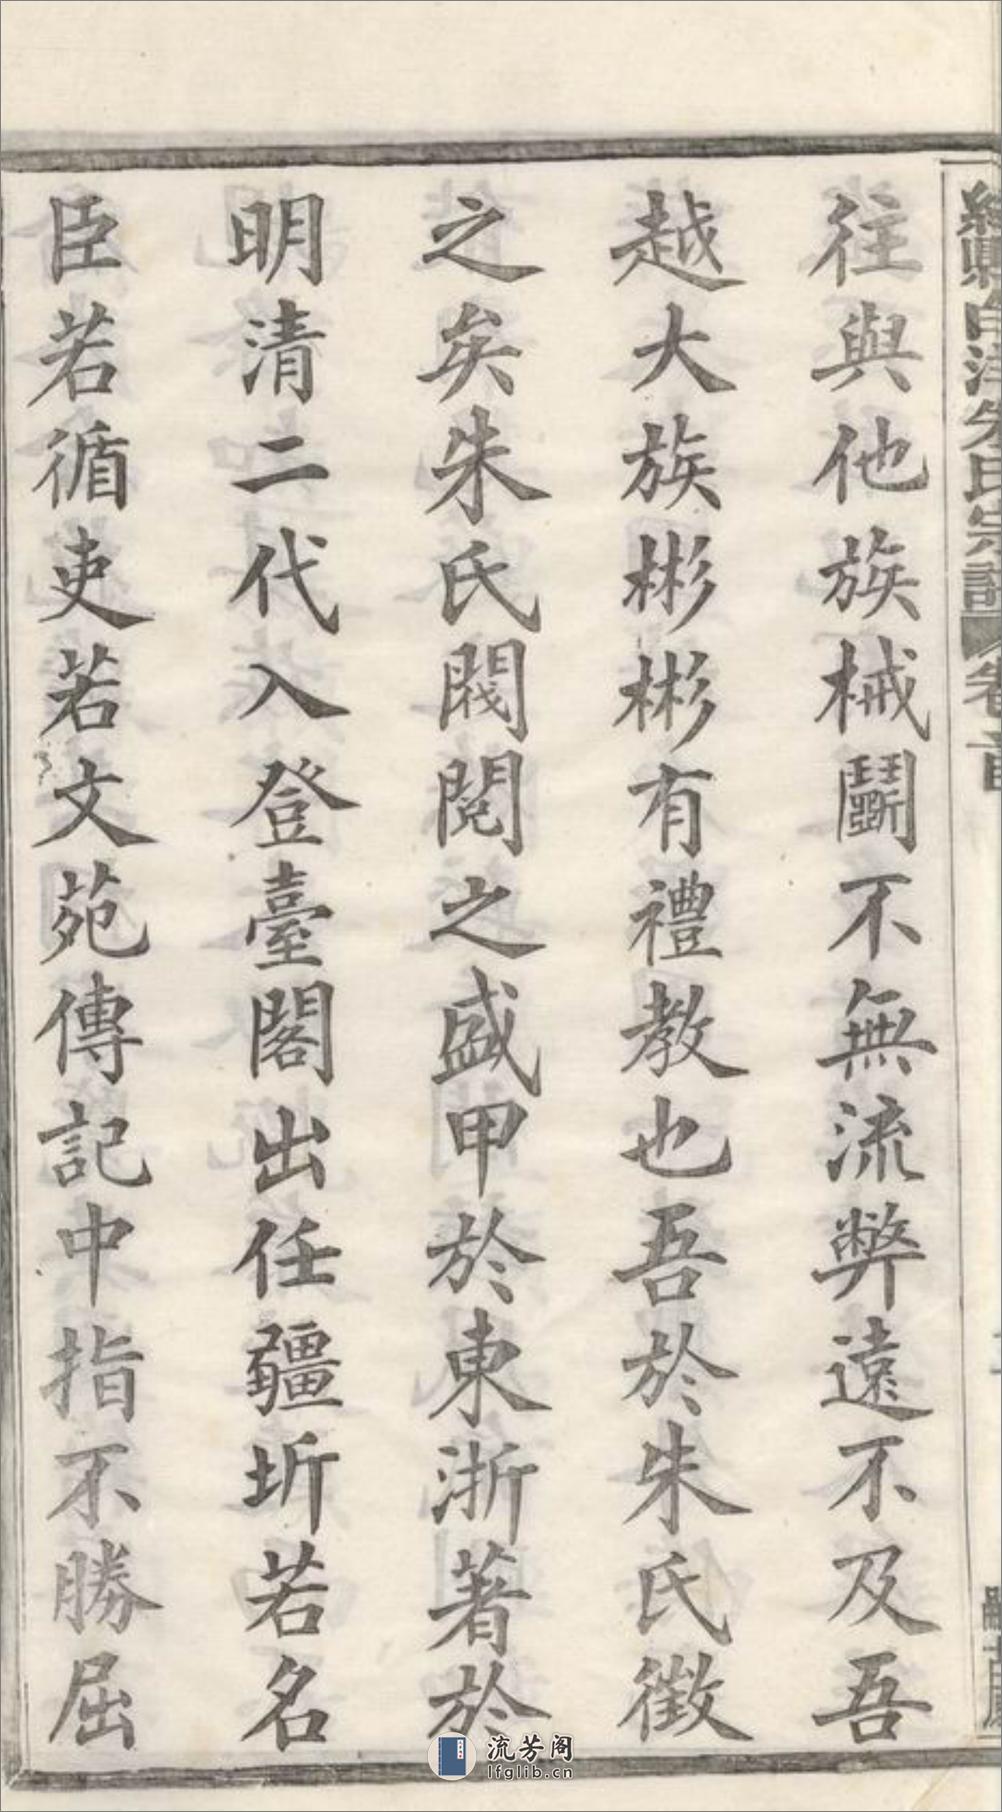 白洋朱氏宗譜 卷首
往與他族械鬬不無流弊遠不及吾
越大族彬彬有禮教也吾於朱氏徵
之矣朱氏閥閱之盛甲於東浙著於
明清二代入登臺閣出任疆圻若名
臣若循吏若文苑傳記中指不勝屈
流芳阁
lfglib.cn